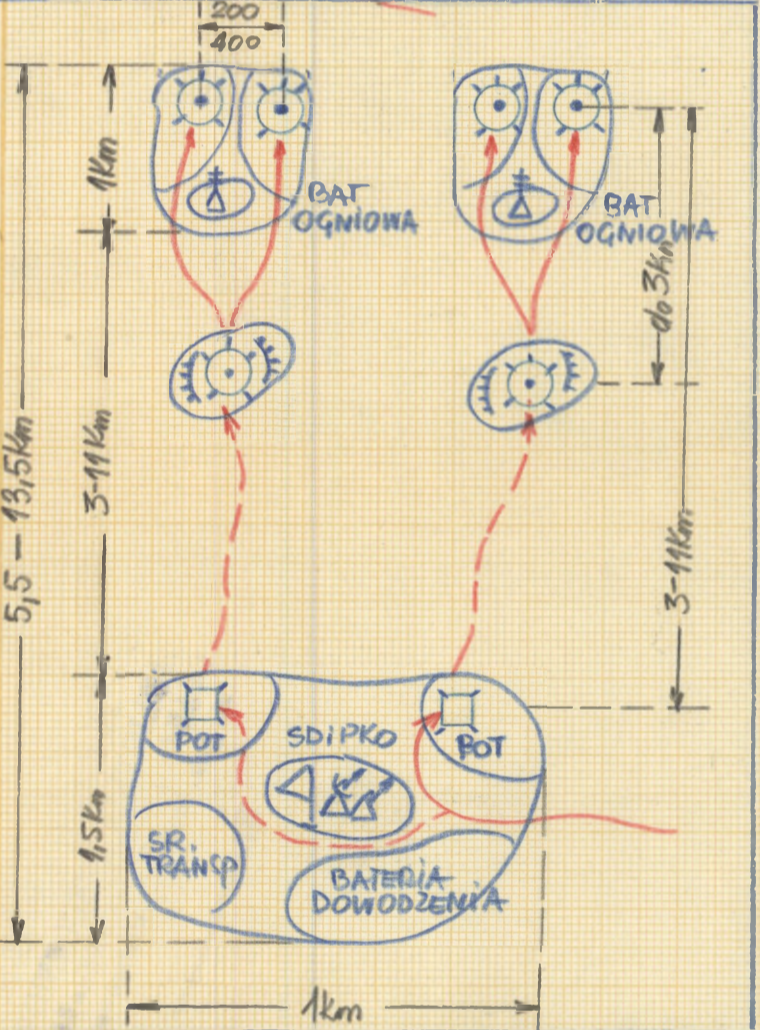 200
400
1Km
BAT
OGNIOWA
BAT
OGNIOWA
do 3Km
3-11Km
5,5 — 13,5Km
3-11Km
POT
SDiPKO
POT
1,5Km
ŚR.
TRANSP
BATERIA
DOWODZENIA
1Km